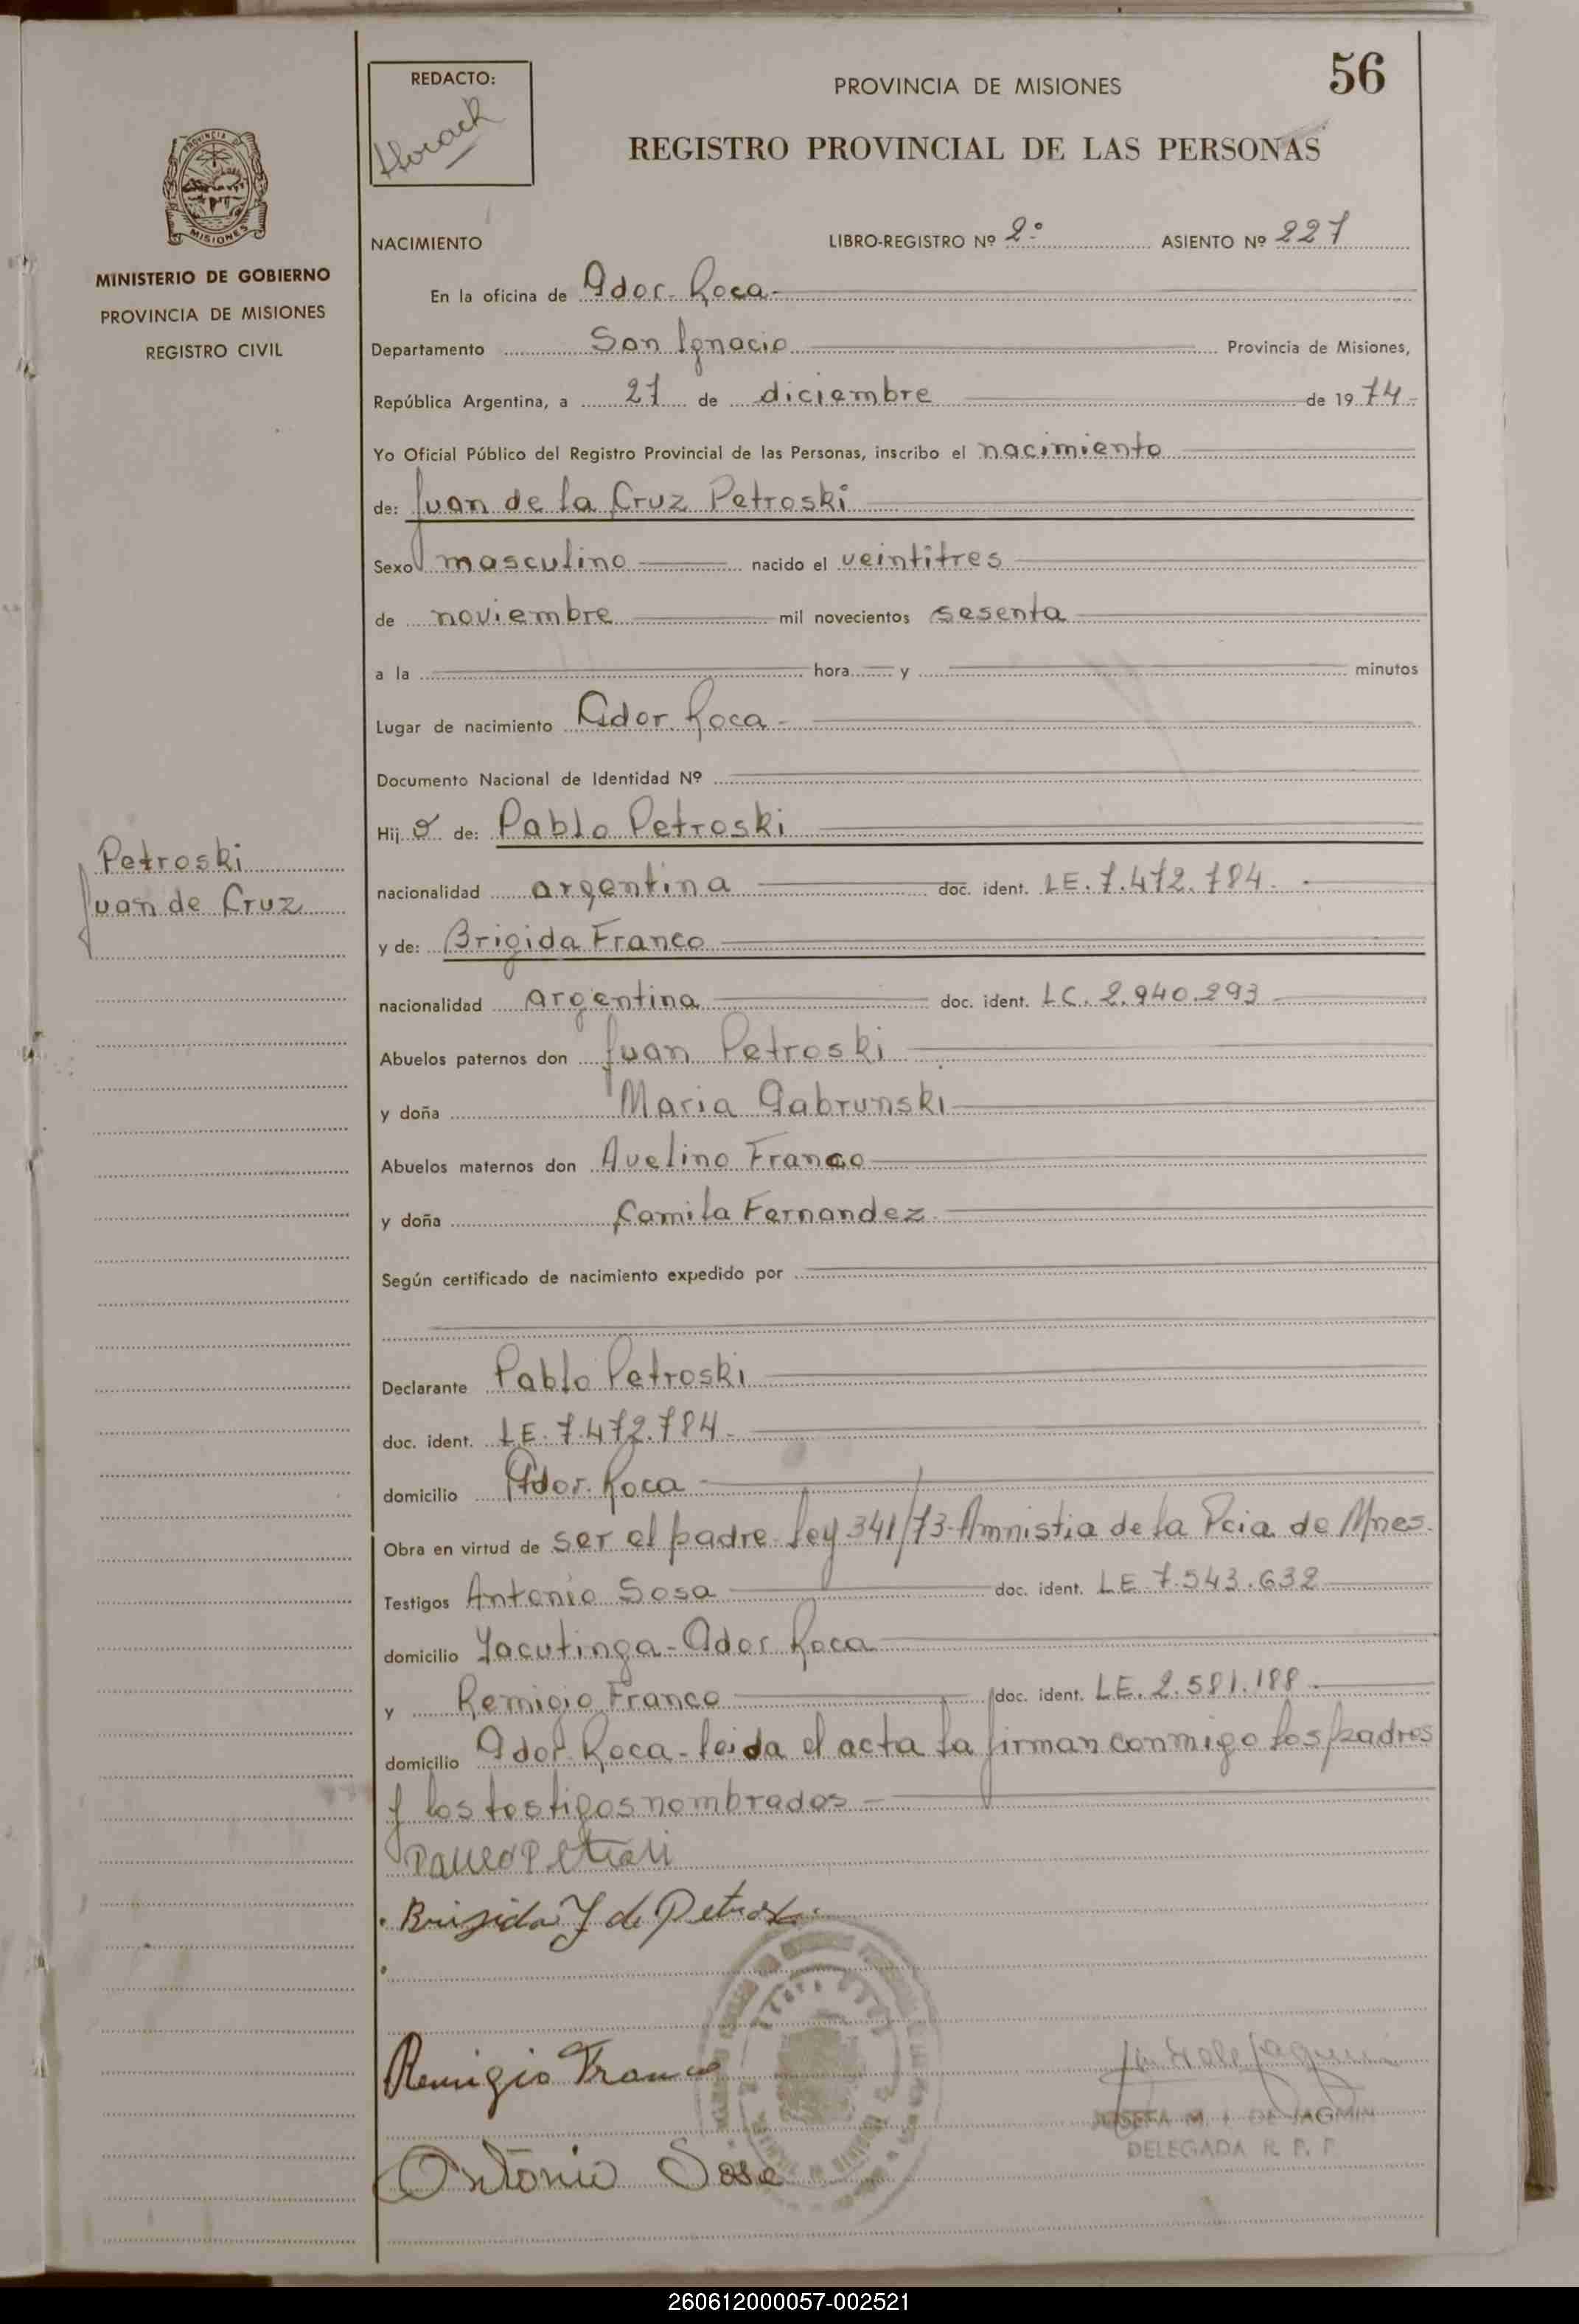 56
REDACTO:
PROVINCIA DE MISIONES
REGISTRO PROVINCIAL DE LAS PERSONAS
PROVINCIA
MISIONES
MINISTERIO DE GOBIERNO
PROVINCIA DE MISIONES
REGISTRO CIVIL
NACIMIENTO LIBRO-REGISTRO Nº 2º ASIENTO Nº 227
En la oficina de Gdor. Roca
Departamento San Ignacio Provincia de Misiones,
República Argentina, a 27 de diciembre de 1974.
Yo Oficial Público del Registro Provincial de las Personas, inscribo el nacimiento
de: Juan de la Cruz Petroski
Sexo masculino nacido el veintitres
de noviembre mil novecientos sesenta
a la hora y minutos
Lugar de nacimiento Gdor. Roca
Documento Nacional de Identidad Nº
Hijo de: Pablo Petroski
Petroski
Juan de Cruz
nacionalidad argentina doc. ident. LE. 7.472.784.
y de: Brigida Franco
nacionalidad argentina doc. ident. LC. 2.940.293
Abuelos paternos don Juan Petroski
y doña Maria Gabrunski
Abuelos maternos don Avelino Franco
y doña Camila Fernandez
Según certificado de nacimiento expedido por
Declarante Pablo Petroski
doc. ident. LE. 7.472.784.
domicilio Gdor. Roca
Obra en virtud de ser el padre-ley 341/73-Amnistia de la Pcia de Mnes.
Testigos Antonio Sosa doc. ident. LE 7.543.632
domicilio Yacutinga-Gdor Roca
y Remigio Franco doc. ident. LE. 2.581.188.
domicilio Gdor. Roca-leida el acta la firman conmigo los padres
y los testigos nombrados
Brigida F de Petroski
Remigio Franco
Antonio Sosa
JOSEFA M. DE JAGMIN
DELEGADA R. P. P.
260612000057-002521